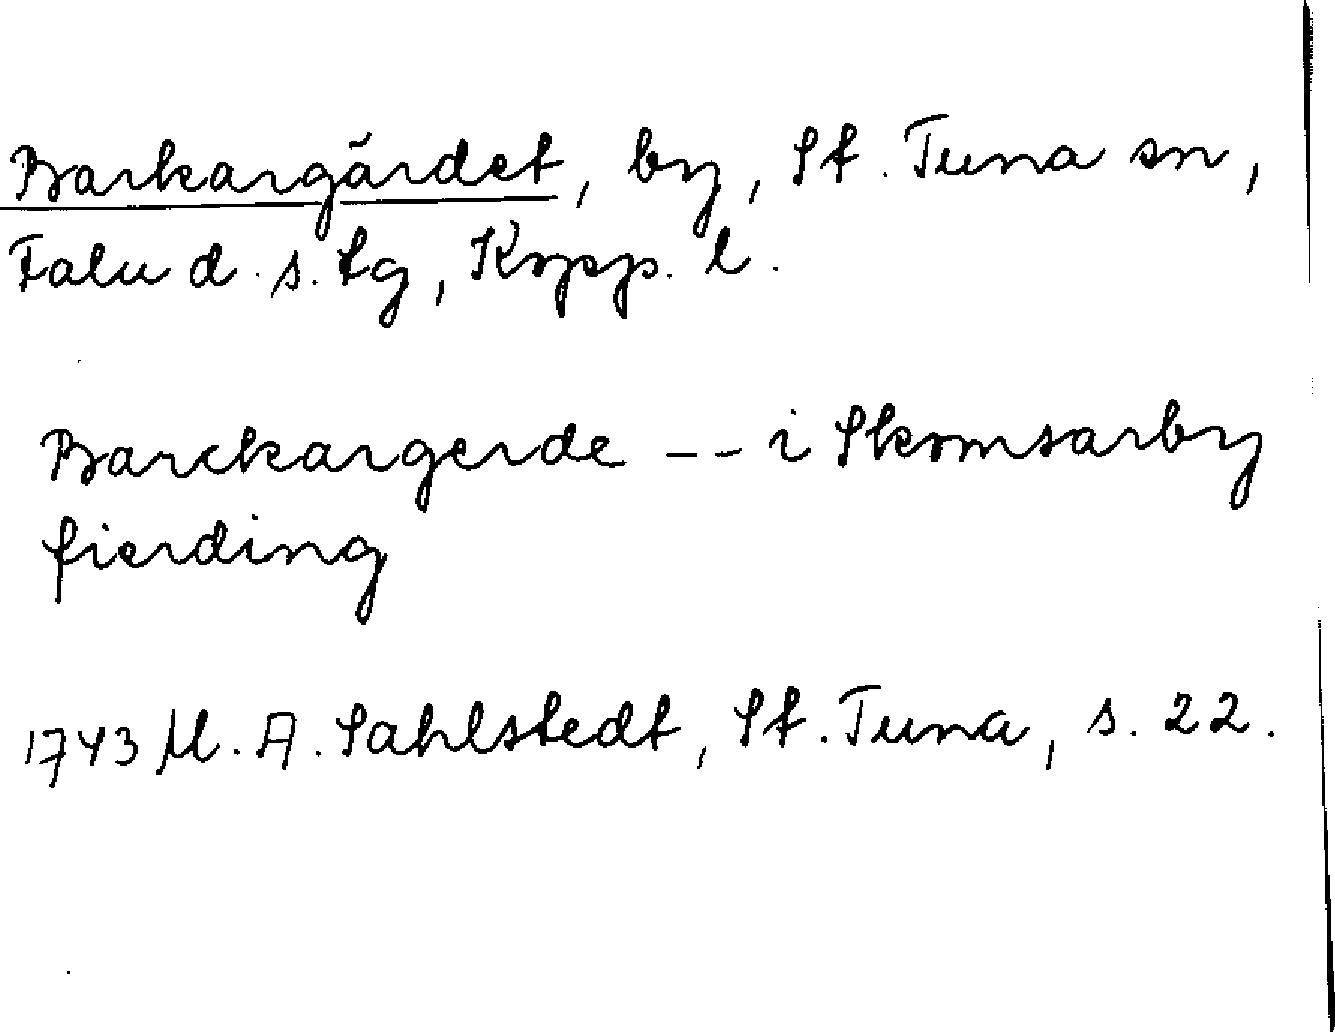 Barkargärdet, by, St. Tuna sn,
Falu d. s. tg, Kopp. l.
Barckargerde -- i Skomsarby
fierding
1743 M. A. Sahlstedt, St. Tuna, s. 22.